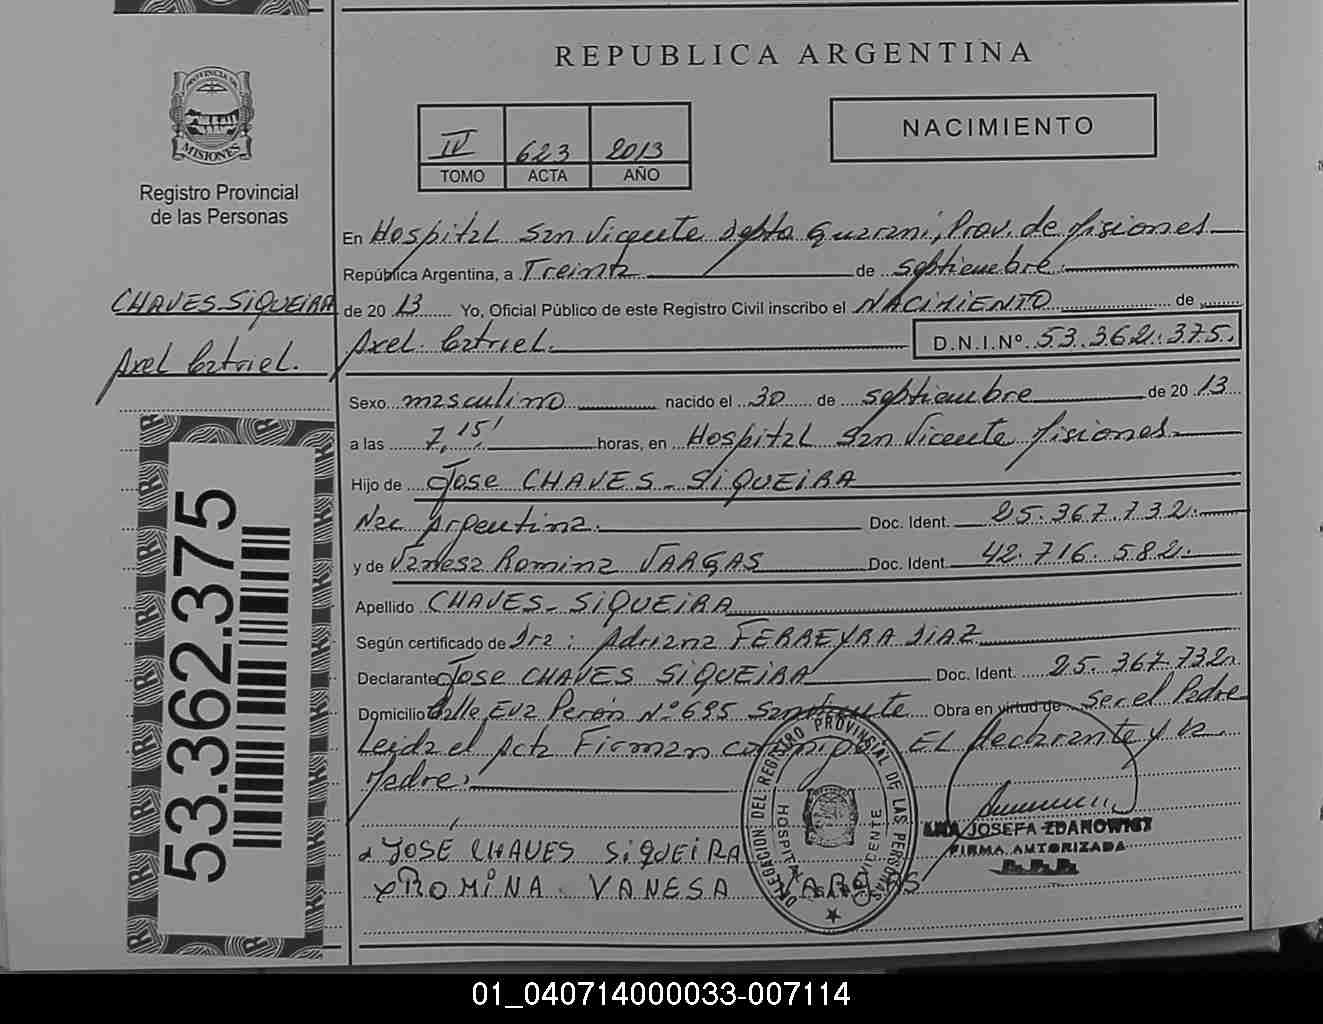 REPUBLICA ARGENTINA
PROVINCIA DE
MISIONES
Registro Provincial
de las Personas
IV 623 2013
TOMO ACTA AÑO
NACIMIENTO
En Hospital San Vicente Dpto Guarani, Prov. de Misiones
República Argentina, a Treinta de septiembre
CHAVES-SIQUEIRA
Axel
de 2013 Yo, Oficial Público de este Registro Civil inscribo el NACIMIENTO de
Axel D.N.I.Nº 53.362.375.
Sexo masculino nacido el 30 de septiembre de 2013
a las 7,15' horas, en Hospital San Vicente Misiones
Hijo de Jose CHAVES-SIQUEIRA
Nac Argentina. Doc. Ident. 25.367.732.
y de Vanesa Romina VARGAS Doc. Ident. 42.716.582.
Apellido CHAVES-SIQUEIRA
Según certificado de Dra: Adriana FERREYRA DIAZ
Declarante Jose CHAVES SIQUEIRA Doc. Ident. 25.367.732
Domicilio Calle Eva Perón Nº 695 San Vicente Obra en virtud de Ser el Padre
Leida el Acta Firman conmigo EL Declarante y La
Madre:
JOSÉ CHAVES SIQUEIRA
ROMINA VANESA VARGAS
53.362.375
DELEGACION DEL REGISTRO PROVINSIAL DE LAS PERSONAS
HOSPITAL VICENTE
ANA JOSEFA ZDANOWICZ
FIRMA AUTORIZADA
R.P.P.
01_040714000033-007114